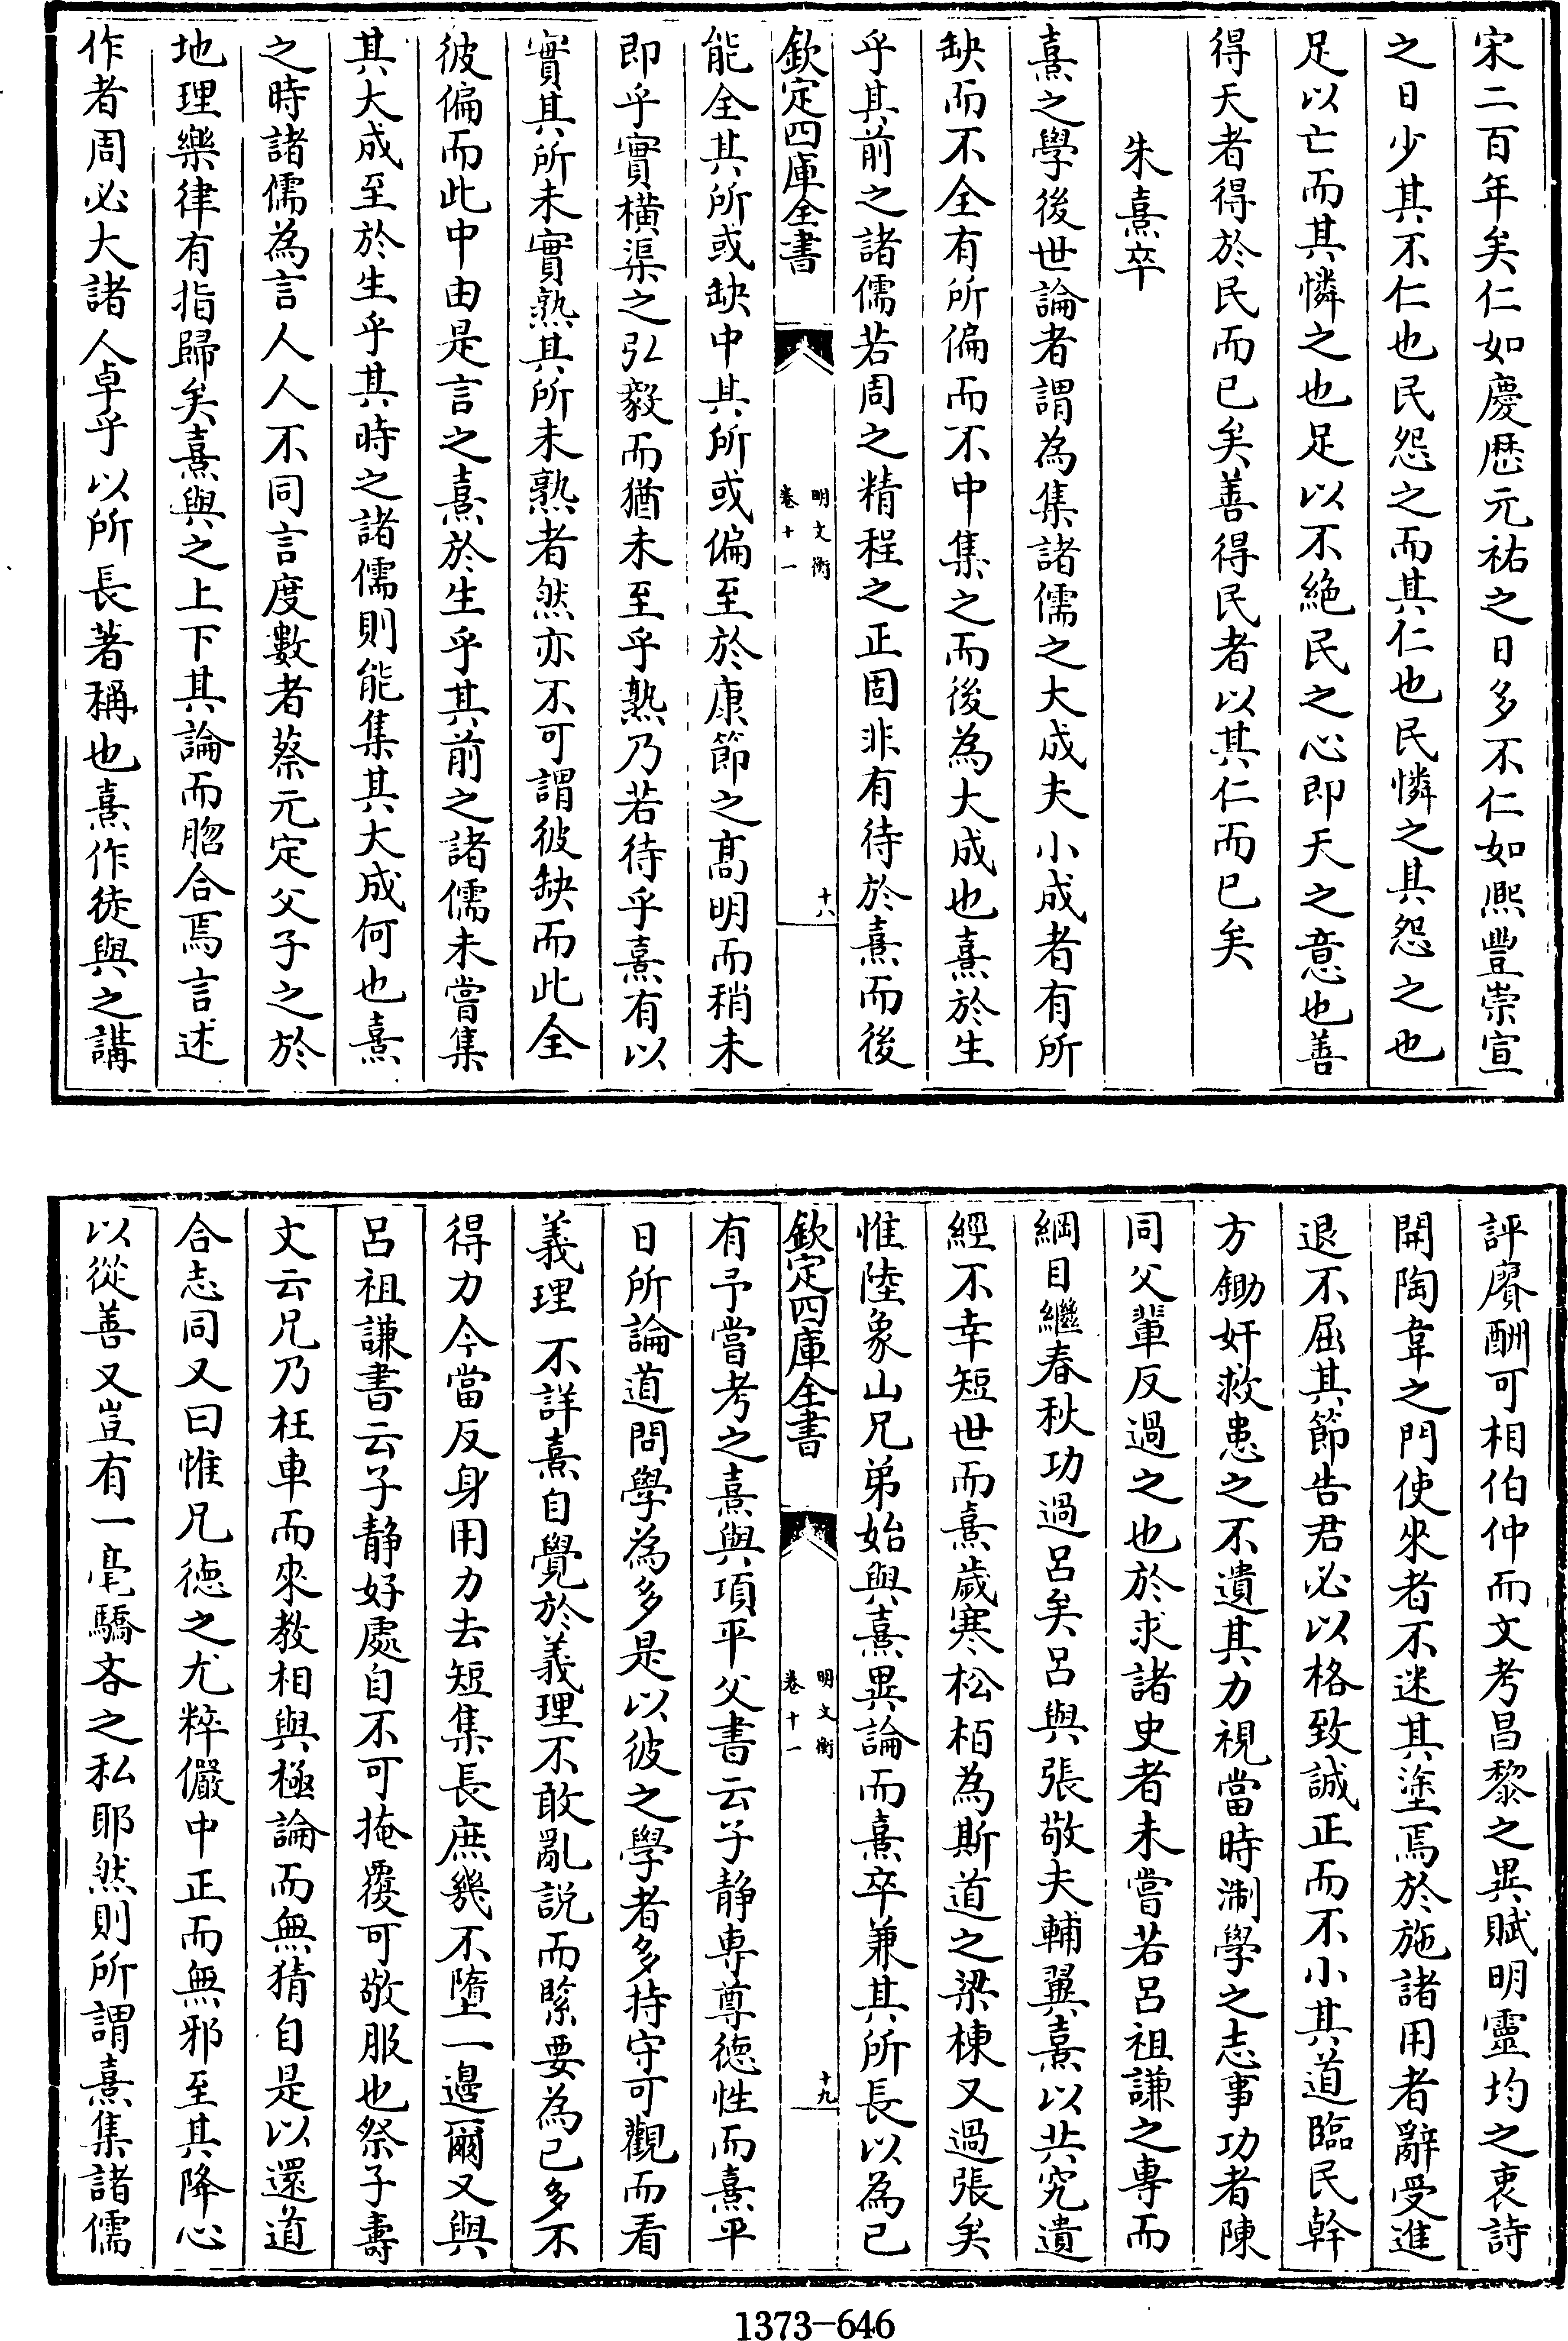 宋二百年矣仁如慶厯元祐之日多不仁如熈豐崇宣
之日少其不仁也民怨之而其仁也民憐之其怨之也
足以亡而其憐之也足以不絶民之心即天之意也善
得天者得於民而已矣善得民者以其仁而已矣
朱熹卒
熹之學後世論者謂為集諸儒之大成夫小成者有所
缺而不全有所偏而不中集之而後為大成也熹於生
乎其前之諸儒若周之精程之正固非有待於熹而後
欽定四庫全書
明文衡
卷十一
十八
能全其所或缺中其所或偏至於康節之髙明而稍未
即乎實橫渠之弘毅而猶未至乎熟乃若待乎熹有以
實其所未實熟其所未熟者然亦不可謂彼缺而此全
彼偏而此中由是言之熹於生乎其前之諸儒未嘗集
其大成至於生乎其時之諸儒則能集其大成何也熹
之時諸儒為言人人不同言度數者蔡元定父子之於
地理樂律有指歸矣熹與之上下其論而脗合焉言述
作者周必大諸人卓乎以所長著稱也熹作徒與之講
評賡酬可相伯仲而文考昌黎之異賦明靈均之衷詩
開陶韋之門使來者不迷其塗焉於施諸用者辭受進
退不屈其節告君必以格致誠正而不小其道臨民幹
方鋤奸救患之不遺其力視當時淛學之志事功者陳
同父輩反過之也於求諸史者未嘗若呂祖謙之專而
綱目繼春秋功過呂矣呂與張敬夫輔翼熹以共究遺
經不幸短世而熹歲寒松栢為斯道之梁棟又過張矣
惟陸象山兄弟始與熹異論而熹卒兼其所長以為己
欽定四庫全書
明文衡
卷十一
十九
有予嘗考之熹與項平父書云子静専尊徳性而熹平
日所論道問學為多是以彼之學者多持守可觀而看
義理不詳熹自覺於義理不敢亂説而緊要為己多不
得力今當反身用力去短集長庶幾不墮一邊爾又與
呂祖謙書云子静好處自不可掩覆可敬服也祭子壽
文云兄乃枉車而來教相與極論而無猜自是以還道
合志同又曰惟兄徳之尤粹儼中正而無邪至其降心
以從善又豈有一毫驕吝之私耶然則所謂熹集諸儒
1373-646